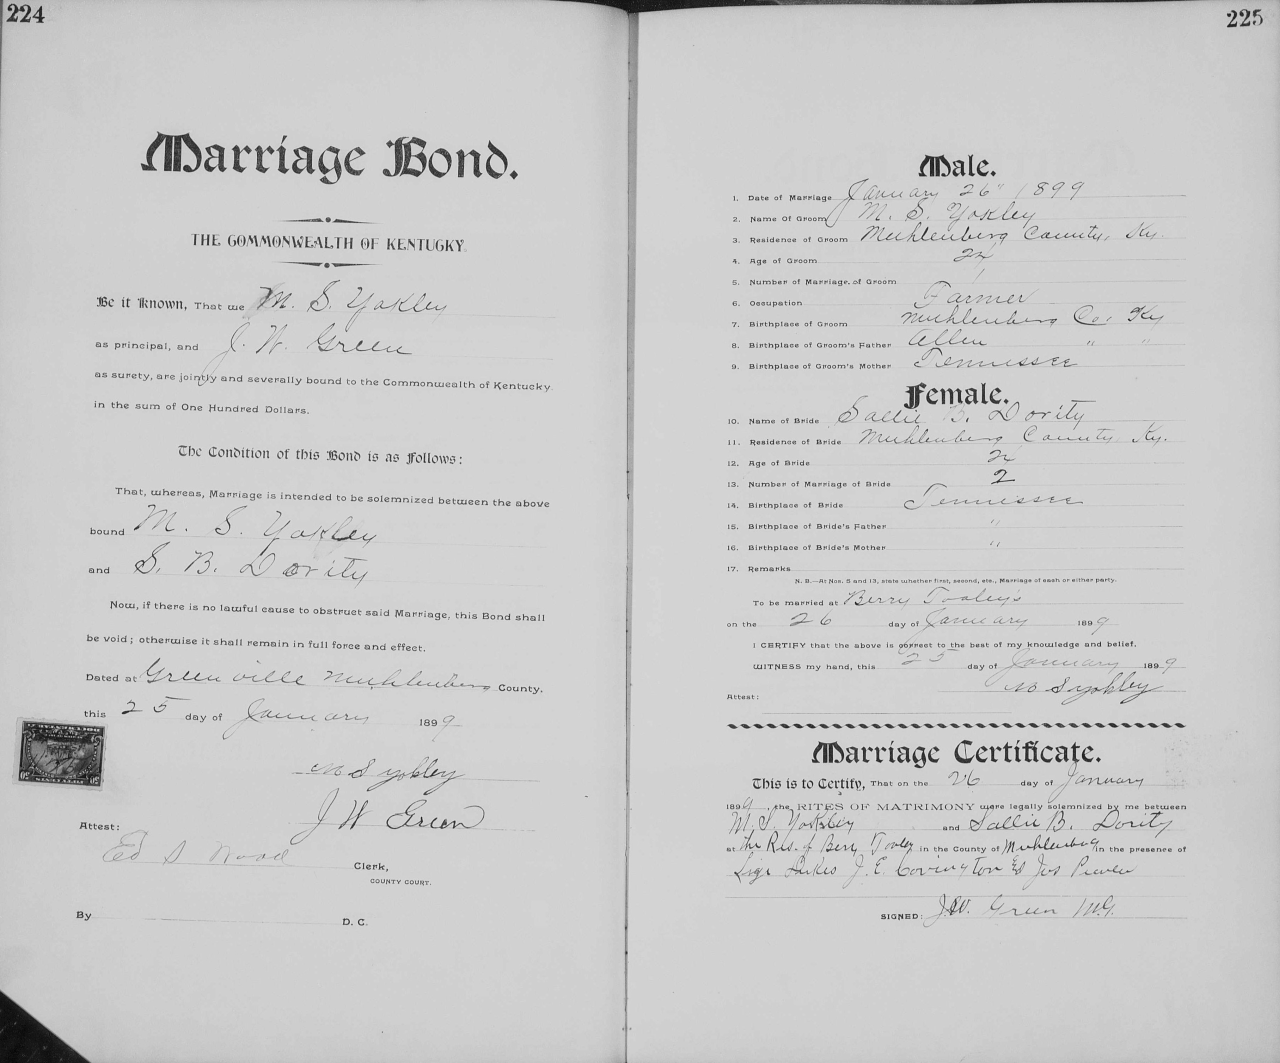 224
Marriage Bond.
THE COMMONWEALTH OF KENTUCKY
Be it Known, That we M. S. Yokley
as principal, and J. W. Green
as surety, are jointly and severally bound to the Commonwealth of Kentucky
in the sum of One Hundred Dollars.
The Condition of this Bond is as Follows:
That, whereas, Marriage is intended to be solemnized between the above
bound M. S. Yokley
and S. B. Dority
Now, if there is no lawful cause to obstruct said Marriage, this Bond shall
be void; otherwise it shall remain in full force and effect.
Dated at Greenville Muhlenberg County.
this 25 day of January 1899
M S Yokley
J W Green
Attest:
Ed S Wood Clerk,
COUNTY COURT.
By D. C.
225
Male.
1. Date of Marriage January 26" 1899
2. Name Of Groom M. S. Yokley
3. Residence of Groom Muhlenberg County, Ky.
4. Age of Groom 24
5. Number of Marriage of Groom 1
6. Occupation Farmer
7. Birthplace of Groom Muhlenberg Co. Ky
8. Birthplace of Groom's Father Allen " "
9. Birthplace of Groom's Mother Tennessee
Female.
10. Name of Bride Sallie B. Dority
11. Residence of Bride Muhlenberg County Ky.
12. Age of Bride 24
13. Number of Marriage of Bride 2
14. Birthplace of Bride Tennessee
15. Birthplace of Bride's Father "
16. Birthplace of Bride's Mother "
17. Remarks
N. B.—At Nos. 5 and 13, state whether first, second, etc., Marriage of each or either party.
To be married at Berry Tooley's
on the 26 day of January 1899
I CERTIFY that the above is correct to the best of my knowledge and belief.
WITNESS my hand, this 25 day of January 1899
M S Yokley
Attest:
Marriage Certificate.
This is to Certify, That on the 26 day of January
1899, the RITES OF MATRIMONY were legally solemnized by me between
M. S. Yokley and Sallie B. Dority
at the Res. of Berry Tooley in the County of Muhlenberg in the presence of
J. E. Covington & Jos
SIGNED: J. W. Green M.G.